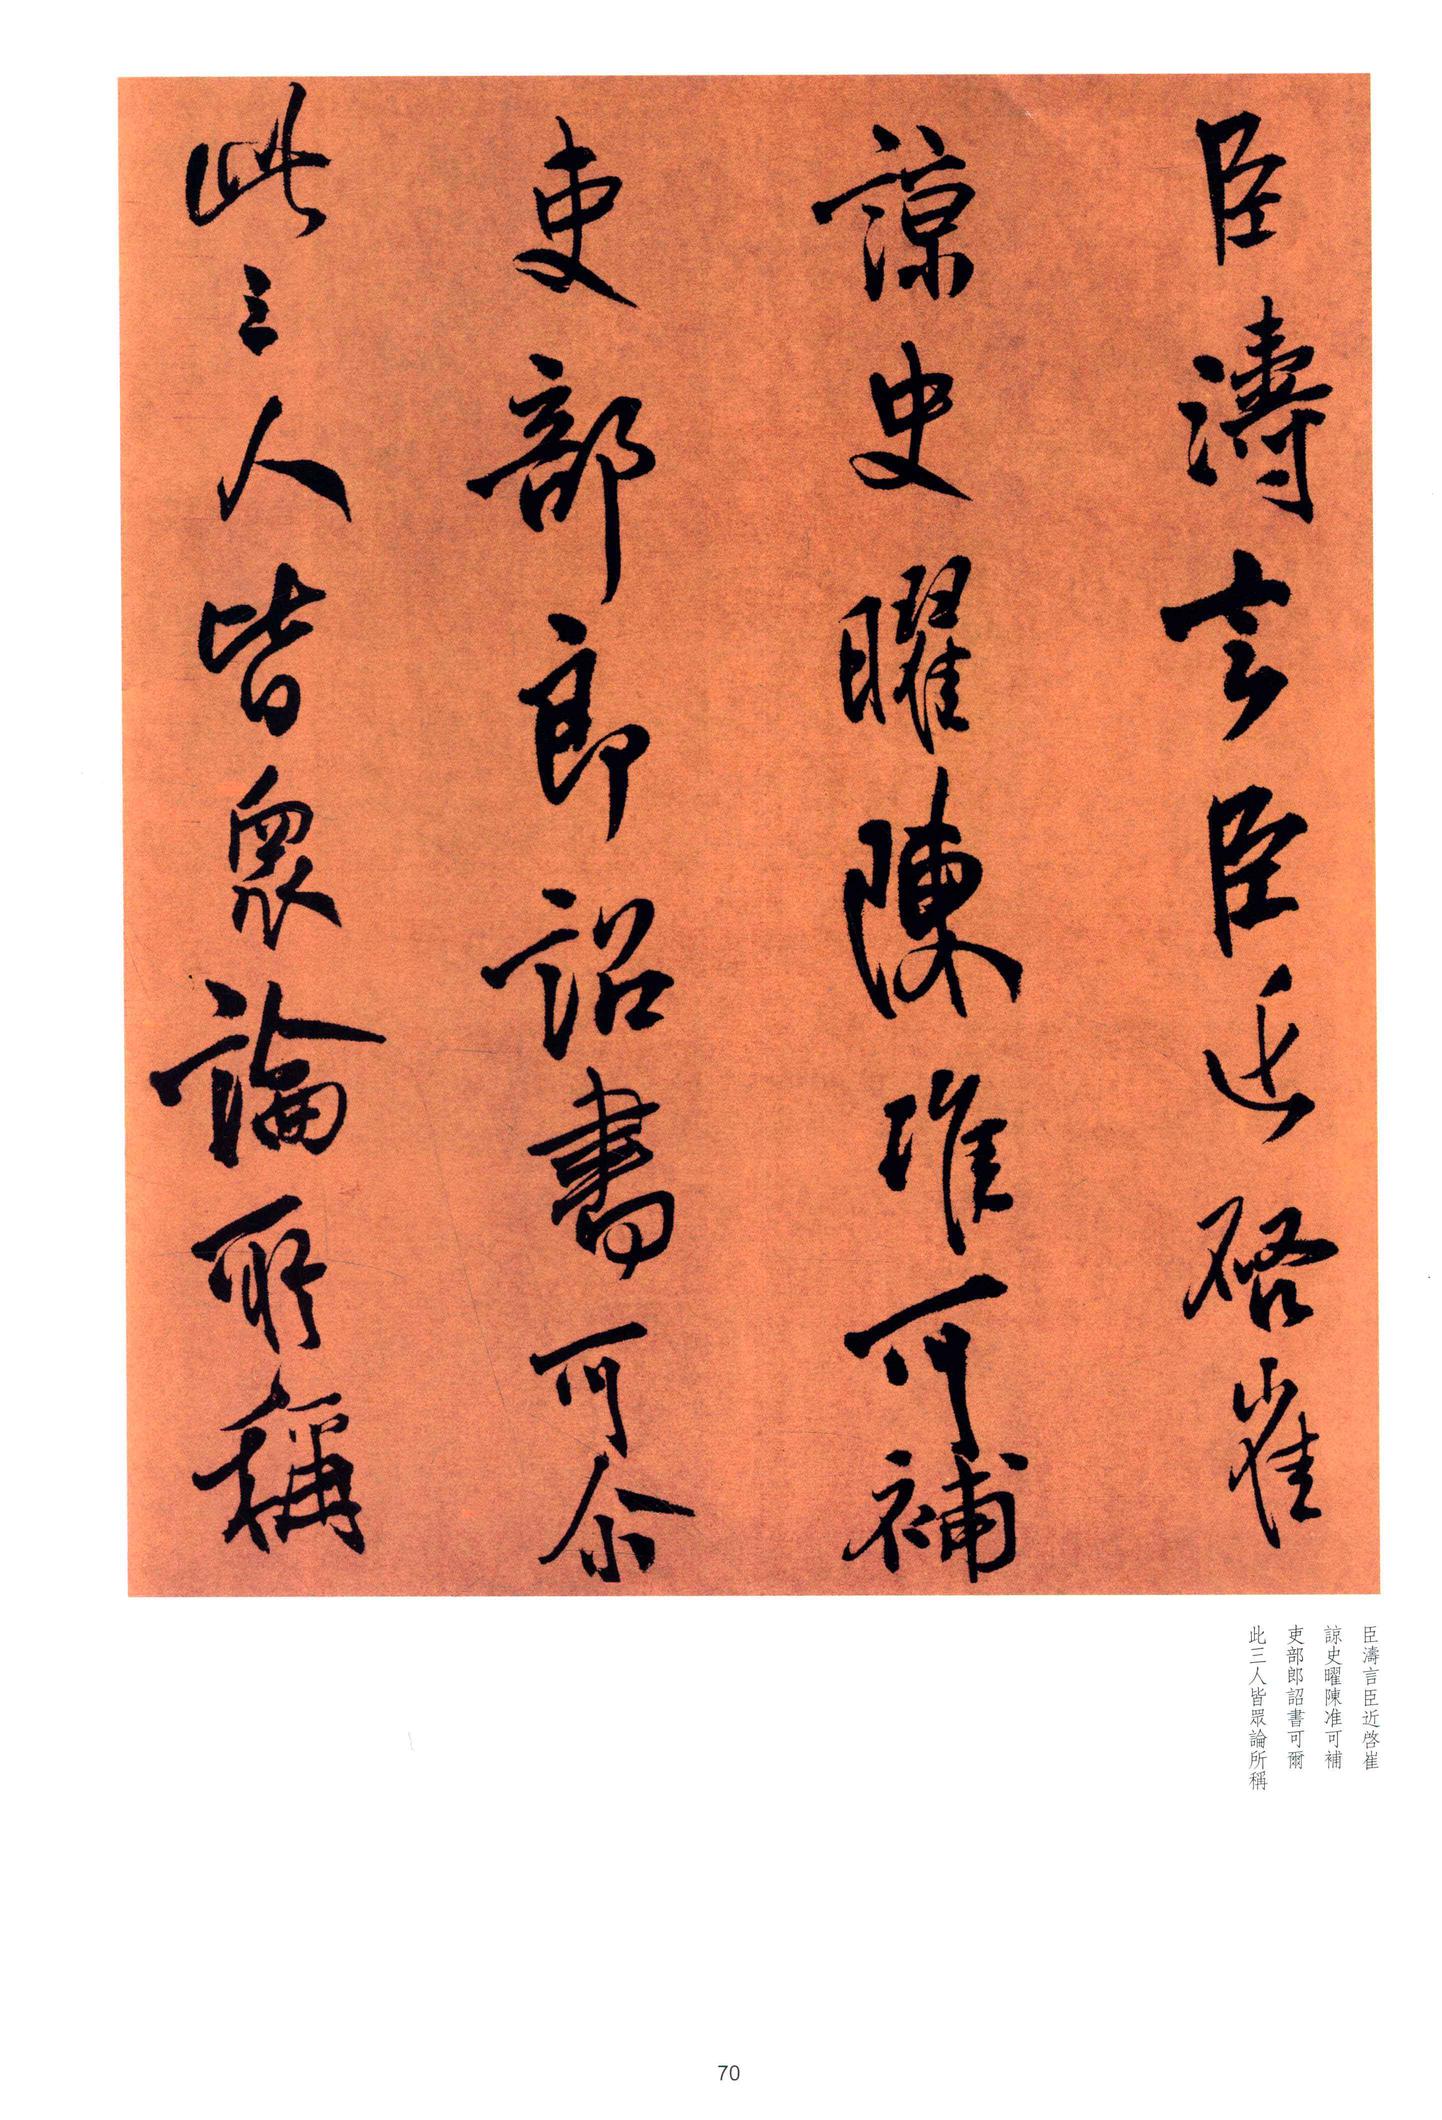 臣濤言臣近啓崔
諒史曜陳准可補
吏部郎詔書可尒
此三人皆眾論所稱
臣濤言臣近啓崔
諒史曜陳准可補
吏部郎詔書可爾
此三人皆眾論所稱
70